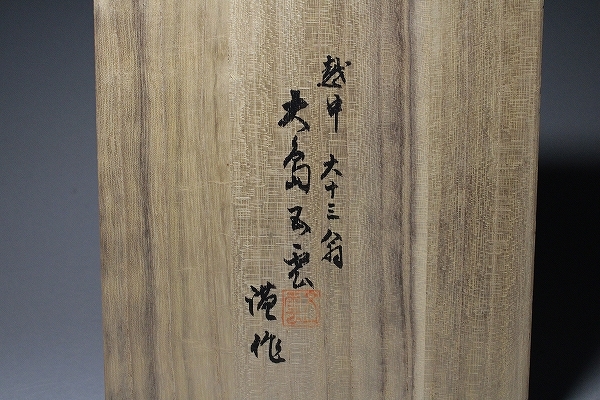 越中 六十三翁
大島五雲
謹作